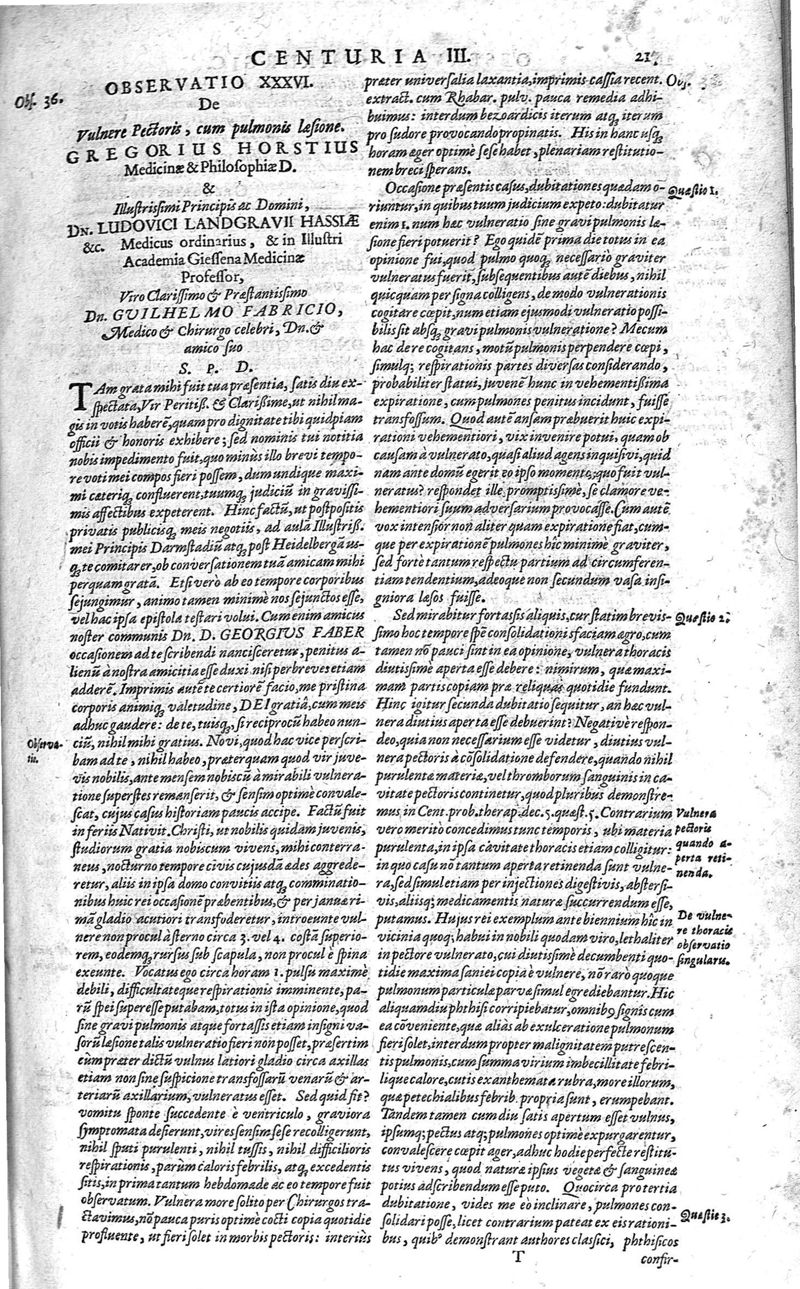 CENTURIA III. 21.
Obs. 36.
OBSERVATIO XXXVI.
De
Vulnere Pectoris, cum pulmonis læsione.
GREGORIUS HORSTIUS
Medicinæ & Philosophiæ D.
&
Illustrissimi Principis ac Domini,
DN. LUDOVICI LANDGRAVII HASSIÆ
&c. Medicus ordinarius, & in Illustri
Academia Giessena Medicinæ
Professor,
Viro Clarissimo & Præstantissimo
Dn. GUILHELMO FABRICIO,
Medico & Chirurgo celebri, Dn. &
amico suo
S. P. D.
TAm grata mihi fuit tua præsentia, satis diu ex-
spectata, Vir Peritiss. & Clarissime, ut nihil ma-
gis in votis haberē, quam pro dignitate tibi quidpiam
officii & honoris exhibere; sed nominis tui notitia
nobis impedimento fuit, quo minùs illo brevi tempo-
re voti mei compos fieri possem, dum undique maxi-
mi cæteriq; confluerent, tuumq; judiciū in gravissi-
mis affectibus expeterent. Hinc factū, ut postpositis
privatis publicisq; meis negotiis, ad aulā Illustriss.
mei Principis Darmstadiū atq; post Heidelbergā us-
q; te comitarer, ob conversationem tuā amicam mihi
perquam gratā. Etsi verò ab eo tempore corporibus
sejungimur, animo tamen minimè nos sejunctos esse,
vel hac ipsa epistola testari volui. Cum enim amicus
noster communis Dn. D. GEORGIUS FABER
occasionem ad te scribendi nancisceretur, penitus a-
lienū à nostra amicitia esse duxi, nisi per breves etiam
adderē. Imprimis autē te certiorē facio, me pristina
corporis animiq; valetudine, DEI gratiâ, cum meis
adhuc gaudere: de te, tuisq; si reciprocū habeo nun-
ciū, nihil mihi gratius. Novi, quod hac vice perscri-
Observa-
tio.
bam ad te, nihil habeo, præterquam quod vir juve-
vis nobilis, ante mensem nobiscū à mirabili vulnera-
tione superstes remanserit, & sensim optimè convale-
scat, cujus casus historiam paucis accipe. Factū fuit
in feriis Nativit. Christi, ut nobilis quidam juvenis,
studiorum gratia nobiscum vivens, mihi conterra-
neus, nocturno tempore civis cujusdā ædes aggrede-
retur, aliis in ipsa domo convitiis atq; comminatio-
nibus huic rei occasionē præbentibus, & per januæ ri-
mā gladio acutiori transfoderetur, introeunte vul-
nere non procul à sterno circa 3. vel 4. costā superio-
rem, eodemq; rursus sub scapula, non procul è spina
exeunte. Vocatus ego circa horam 1. pulsu maximè
debili, difficultateque respirationis imminente, pa-
rū spei superesse putabam, totus in ista opinione, quod
sine gravi pulmonis atque fortassis etiam insigni va-
sorū læsione talis vulneratio fieri non posset, præsertim
cùm præter dictū vulnus latiori gladio circa axillas
etiam non sine suspicione transfossarū venarū & ar-
teriarū axillarium, vulneratus esset. Sed quid fit?
vomitu sponte succedente è ventriculo, graviora
symptomata desierunt, vires sensim sese recolligerunt,
nihil sputi purulenti, nihil tussis, nihil difficilioris
respirationis, parùm caloris febrilis, atq; excedentis
sitis, in prima tantum hebdomade ac eo tempore fuit
observatum. Vulnera more solito per Chirurgos tra-
ctavimus, nō pauca puris optimè cocti copia quotidie
profluente, ut fieri solet in morbis pectoris: interiùs
præter universalia laxantia, imprimis cassia recent.
extract. cum Rhabar. pulv. pauca remedia adhi-
buimus: interdum bezoardicis iterum atq; iterum
pro sudore provocando propinatis. His in hanc usq;
horam æger optimè sese habet, plenariam restitutio-
nem breci sperans.
Obs.
Occasione præsentis casus, dubitationes quædam o-
Quæstio 1.
riuntur, in quibus tuum judicium expeto: dubitatur
enim 1. num hæc vulneratio sine gravi pulmonis læ-
sione fieri potuerit? Ego quidē prima die totus in ea
opinione fui, quod pulmo quoq; necessariò graviter
vulneratus fuerit, subsequentibus autē diebus, nihil
quicquam per signa colligens, de modo vulnerationis
cogitare cœpit, num etiam ejusmodi vulneratio possi-
bilis sit absq; gravi pulmonis vulneratione? Mecum
hac de re cogitans, motū pulmonis perpendere cœpi,
simulq; respirationis partes diversas considerando,
probabiliter statui, juvenē hunc in vehementissima
expiratione, cum pulmones penitus incidunt, fuisse
transfossum. Quod autē ansam præbuerit huic expi-
rationi vehementiori, vix invenire potui, quam ob
causam à vulnerato, quasi aliud agens inquisivi, quid
nam ante domū egerit eo ipso momento, quo fuit vul-
neratus? respondet ille promptissimè, se clamore ve-
hementiori suum adversarium provocasse. Cum autē
vox intensior non aliter quam expiratione fiat, cum-
que per expirationē pulmones hîc minimè graviter,
sed fortè tantum respectu partium ad circumferen-
tiam tendentium, adeoque non secundum vasa insi-
gniora læsos fuisse.
Sed mirabitur fortassis aliquis, cur statim brevis-
Quæstio 2.
simo hoc tempore spē consolidationis faciam ægro, cum
tamen nō pauci sint in ea opinione, vulnera thoracis
diutissimè aperta esse debere: nimirum, quæ maxi-
mam partis copiam præ reliquis quotidie fundunt.
Hinc igitur secunda dubitatio sequitur, an hæc vul-
nera diutius aperta esse debuerint? Negativè respon-
deo, quia non necessarium esse videtur, diutius vul-
nera pectoris à cōsolidatione defendere, quando nihil
purulentæ materiæ, vel thromborum sanguinis in ca-
vitate pectoris continetur, quod pluribus demonstre-
mus in Cent. prob. therap. dec. 5. quæst. 5. Contrarium
Vulnera
pectoris
quando a-
perta reti-
nenda.
vero meritò concedimus tunc temporis, ubi materia
purulenta, in ipsa cavitate thoracis etiam colligitur:
in quo casu nō tantum aperta retinenda sunt vulne-
ra, sed simul etiam per injectiones digestivis, abstersi-
vis, aliisq; medicamentis naturæ succurrendum esse,
putamus. Hujus rei exemplum ante biennium hîc in
De vulne-
re thoracis
observatio
singularis.
vicinia quoq; habui in nobili quodam viro, lethaliter
in pectore vulnerato, cui diutissimè decumbenti quo-
tidie maxima saniei copia è vulnere, nō rarò quoque
pulmonum particulæ parvæ simul egrediebantur. Hic
aliquamdiu phthisi corripiebatur, omnibꝰ signis cum
ea cōveniente, quæ aliàs ab exulceratione pulmonum
fieri solet, interdum propter malignitatem putrescen-
tis pulmonis, cum summa virium imbecillitate febri-
lique calore, cutis exanthemata rubra, more illorum,
quæ petechialibus febrib. propria sunt, erumpebant.
Tandem tamen cum diu satis apertum esset vulnus,
ipsumq; pectus atq; pulmones optimè expurgarentur,
convalescere cœpit æger, adhuc hodie perfectè restitu-
tus vivens, quod naturæ ipsius vegetæ & sanguineæ
potius adscribendum esse puto. Quocirca pro tertia
dubitatione, vides me eò inclinare, pulmones con-
Quæstio 3.
solidari posse, licet contrarium pateat ex eis rationi-
bus, quibꝰ demonstrant authores classici, phthisicos
T
confir-